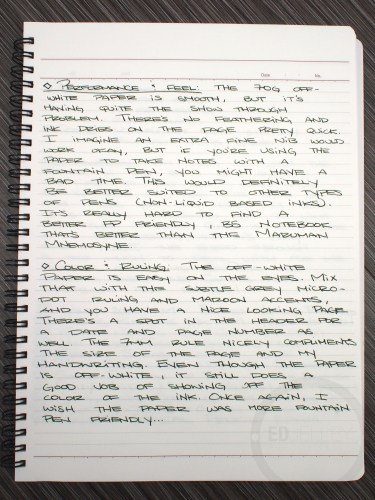 Date No.
◇ Performance & Feel: The 70g off-
white paper is smooth, but it's
having quite the show through
problem. There's no feathering and
ink dries on the page pretty quick.
I imagine an extra fine nib would
work okay, but if you're using the
paper to take notes with a
fountain pen, you might have a
bad time. This would definitely
be better suited to other types
of pens (non-liquid based inks).
It's really hard to find a
better FP friendly, B5 notebook
that's better than the Maruman
Mnemosyne.
◇ Color & Ruling: The off-white
paper is easy on the eyes. Mix
that with the subtle grey micro-
dot ruling and maroon accents,
and you have a nice looking page.
There's a spot in the header for
a date and page number as
well. The 7mm rule nicely compliments
the size of the page and my
handwriting. Even though the paper
is off-white, it still does a
good job of showing off the
color of the ink. Once again, I
wish the paper was more fountain
pen friendly...
ED